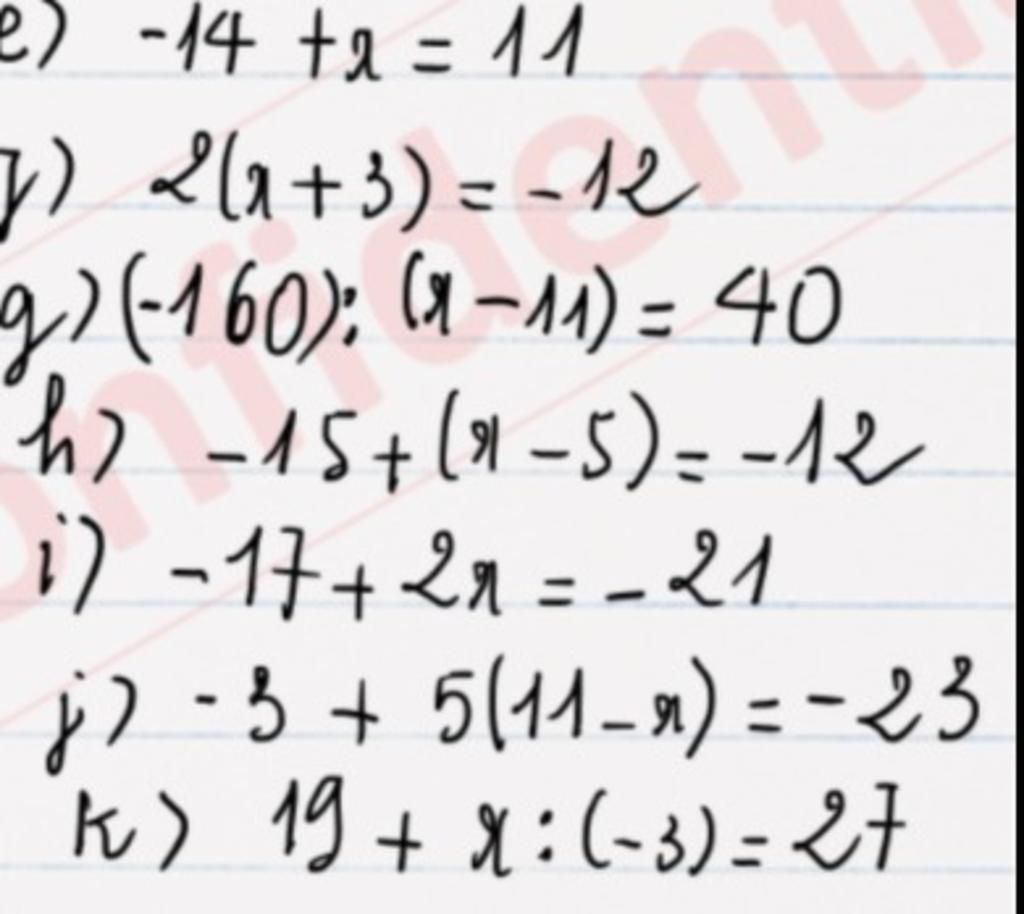 e) -14 + x = 11
f) 2(x + 3) = -12
g) (-160) : (x - 11) = 40
h) -15 + (x - 5) = -12
i) -17 + 2x = -21
j) -3 + 5(11 - x) = -23
k) 19 + x : (-3) = 27